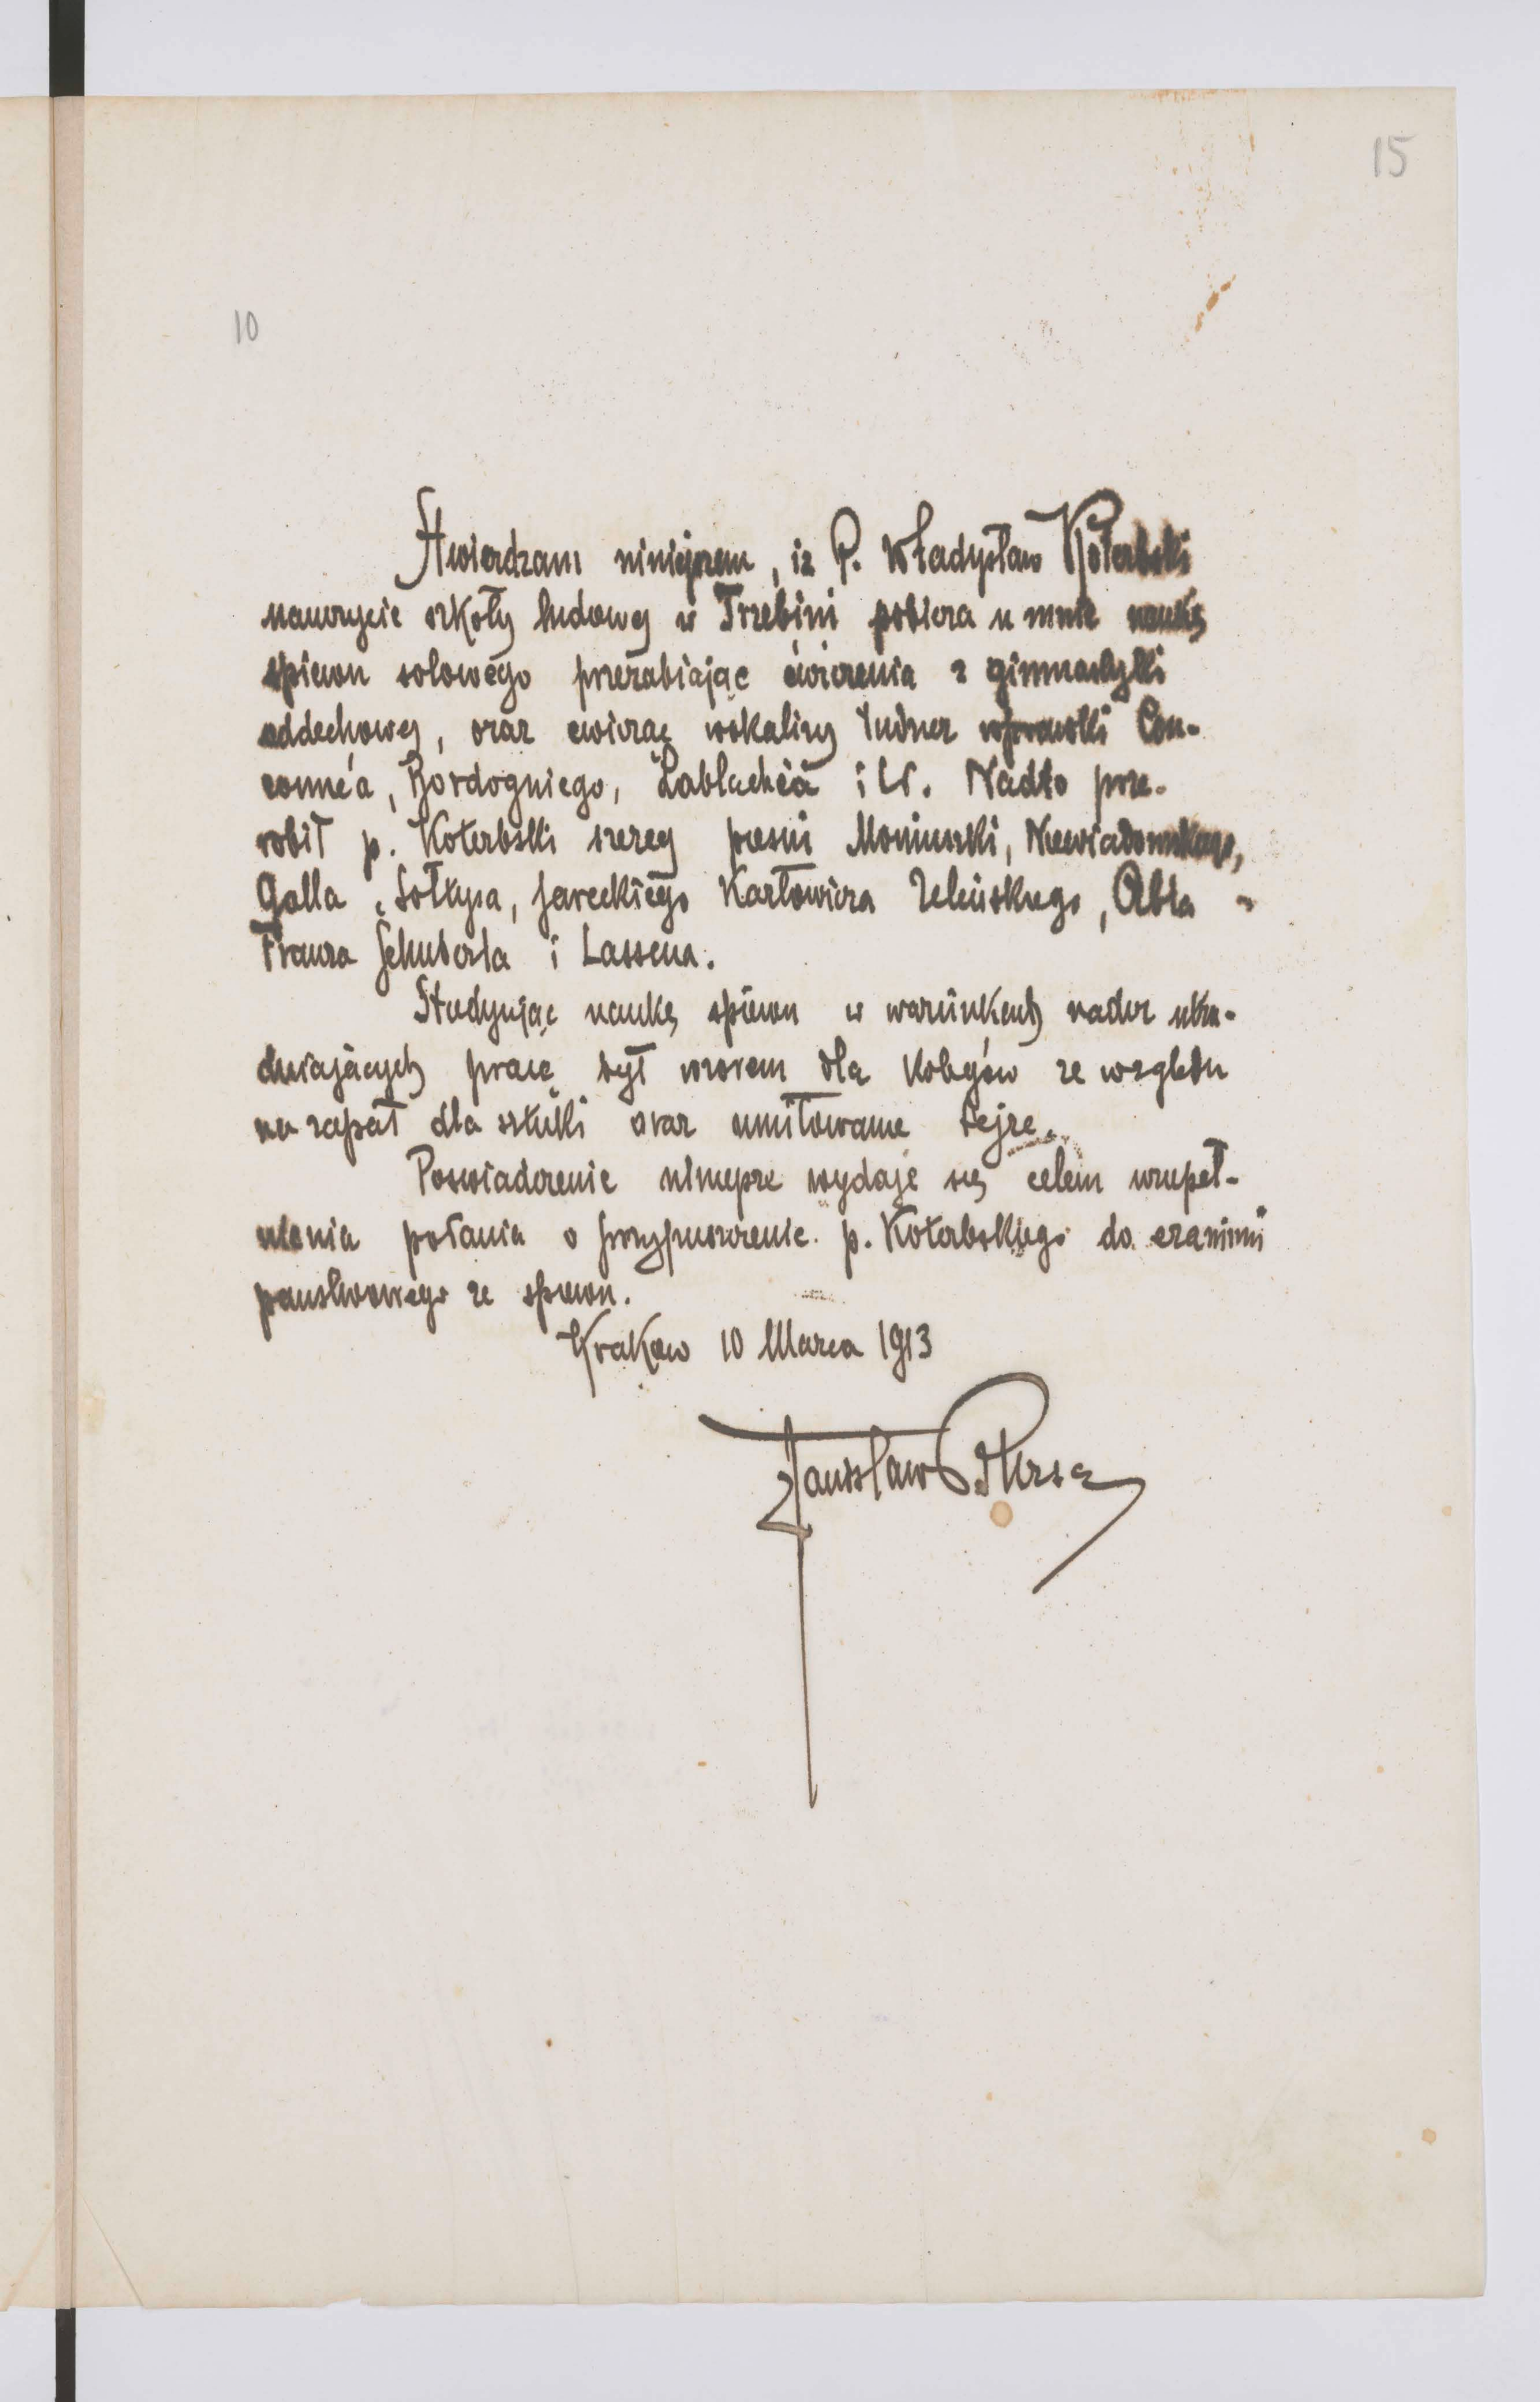 15
10
Stwierdzam niniejszem, iż P. Władysław Koterbski
nauczyciel szkoły ludowej w Trzebini pobiera u mnie naukę
śpiewu solowego przerabiając ćwiczenia z gimnastyki
oddechowej, oraz ćwicząc wokalizy tudzież wprawki Con-
conne'a, Bordogniego, Lablache'a i t.d. Nadto prze-
robił p. Koterbski szereg pieśni Moniuszki, Niewiadomskiego,
Galla, Sołtysa, Jareckiego Karłowicza Żeleńskiego, Abta
Franza Schuberta i Lassena.
Studyując naukę śpiewu w warunkach nader utru-
dniających pracę był wzorem dla kolegów ze względu
na zapał dla sztuki oraz umiłowanie tejże.
Poświadczenie niniejsze wydaje się celem uzupeł-
nienia podania o przypuszczenie p. Koterbskiego do examinu
państwowego ze śpiewu.
Kraków 10 Marca 1913
Stanisław Bursa